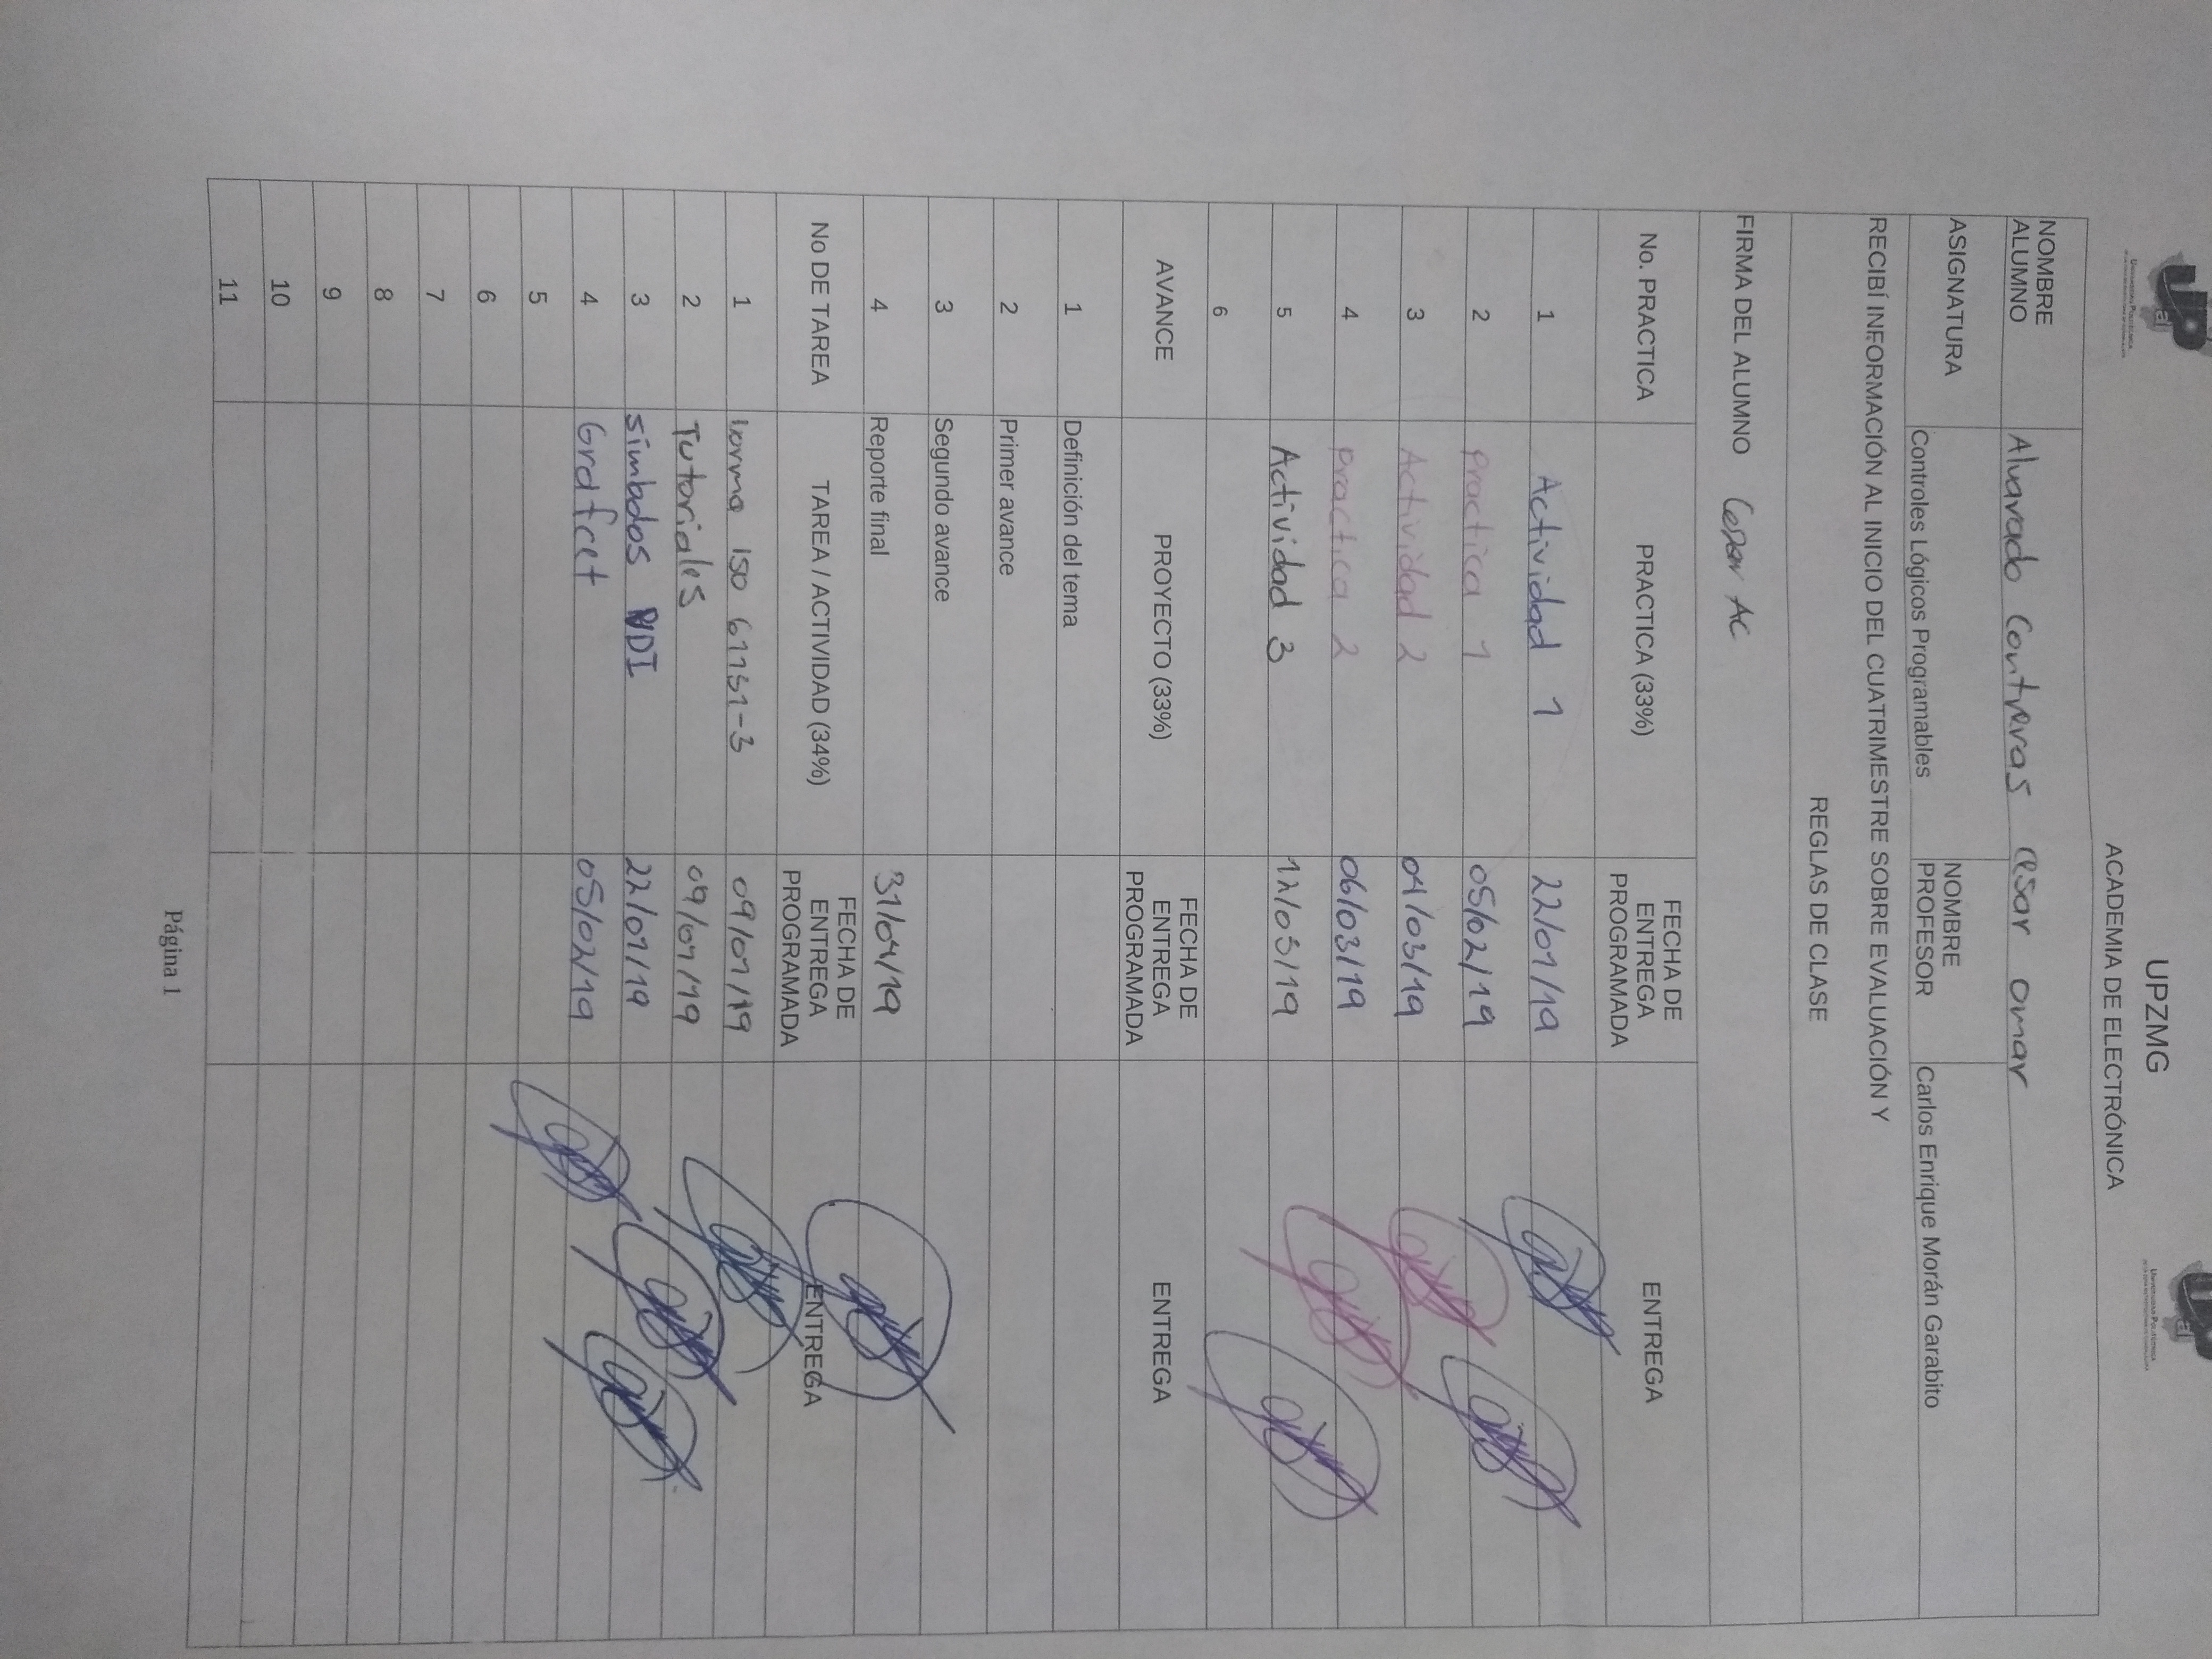 UPZMG
ACADEMIA DE ELECTRÓNICA
NOMBRE ALUMNO Alvarado Contreras Cesar Omar
ASIGNATURA Controles Lógicos Programables NOMBRE PROFESOR Carlos Enrique Morán Garabito
RECIBÍ INFORMACIÓN AL INICIO DEL CUATRIMESTRE SOBRE EVALUACIÓN Y
REGLAS DE CLASE
FIRMA DEL ALUMNO Cesar AC
No. PRACTICA PRACTICA (33%) FECHA DE ENTREGA PROGRAMADA ENTREGA
1 Actividad 1 22/01/19
2 Practica 1 05/02/19
3 Actividad 2 04/03/19
4 Practica 2 06/03/19
5 Actividad 3 12/03/19
6
AVANCE PROYECTO (33%) FECHA DE ENTREGA PROGRAMADA ENTREGA
1 Definición del tema
2 Primer avance
3 Segundo avance
4 Reporte final 31/04/19
No DE TAREA TAREA / ACTIVIDAD (34%) FECHA DE ENTREGA PROGRAMADA ENTREGA
1 ISO 61131-3 09/01/19
2 Tutoriales 09/01/19
3 simbados 22/01/19
4 Gradfcet 05/02/19
5
6
7
8
9
10
11
Página 1